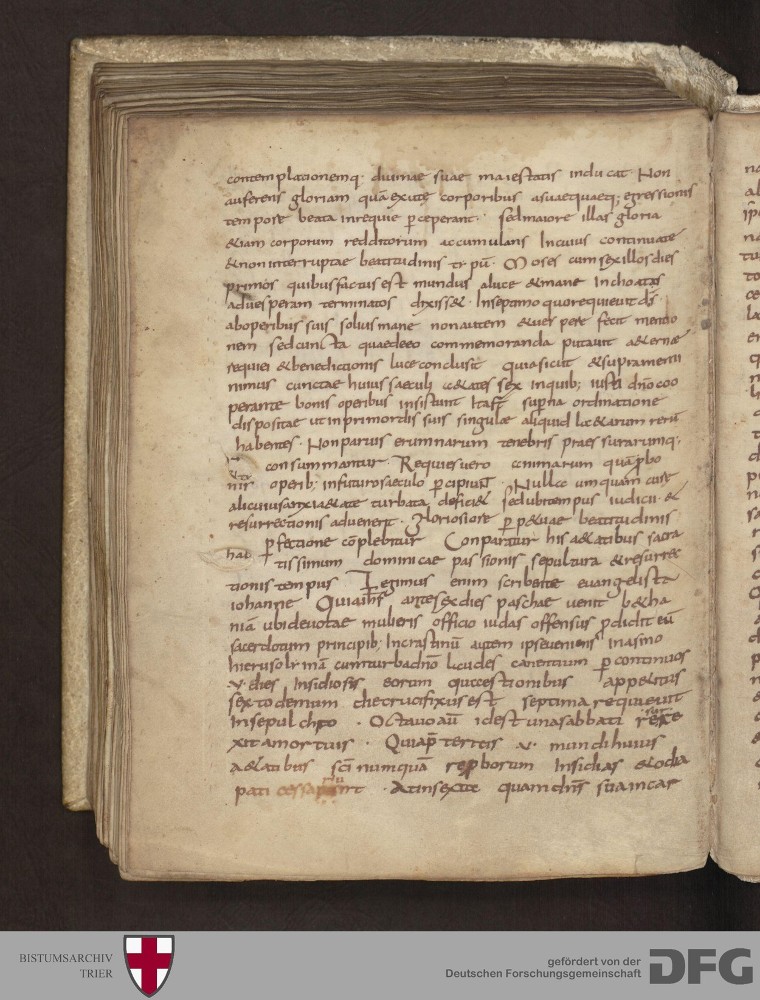 contemplationemq. divinae suae maiestatis inducat. Non
auferens gloriam quā exutę corporibus a suaequaeq; egressionis
tempore beata inrequie pceperant. sed maiore illas gloria
&iam corporum redditorum accumulans In cuius continuatę
& non interruptae beatitudinis Moses cum sex illos dies
primos quibus factus est mundus a luce & mane Inchoatos
ad vesperam terminatos dixiss&. In septimo quo requievit ds̄
ab operibus suis solius mane non autem & vesperę fecit mentio
nem sed cuncta quae de eo commemoranda putavit a&ernę
requiei & benedictionis luce conclusit quia sicut & supra memi
nimus cunctae huius saeculi a&ates sex in quib; iusti dn̄o coo
perante bonis operibus insistunt Ita sr̄ superna ordinatione
dispositae ut in primordiis suis singulae aliquid lae&arum rerū
habentes. Non parvis erumnarum tenebris praessurarumq.
consummantur. Requies vero animarum quā p bo
nis operib; in futuro saeculo pcipiunt. Nulla umquam cuiᵉ
alicuius anxia&ate turbata defici& sed ubi tempus iudicii. &
resurrectionis advenerit. Gloriosiore pp&uae beatitudinis
pfectione cōplebitur Conparatur his a&atibus sacra
hac tissimum dominicae passionis sepultura & resurrec
tionis tempus Legimus enim scribente evangelista
iohanne Quia ihs̄ ante sex dies paschae venit b&ha
niā ubi devotae mulieris officio iudas offensus pdidit eū
sacerdotum principib; In crastinū autem ipse veniens In asino
hierusolimā cum turba dn̄o laudes canentium p continuos
.v. dies Insidiosis eorum questionibus app&itus
sexto demum die crucifixus est septima requievit
In sepulchro. Octavo aū id est una sabbati
xit a mortuis. Quia p terras .v. mundi huius
a&atibus sc̄i numquā reproborum Insidias & odia
pati At in sexta quam dn̄s sua incar
BISTUMSARCHIV
TRIER
gefördert von der
Deutschen Forschungsgemeinschaft
DFG